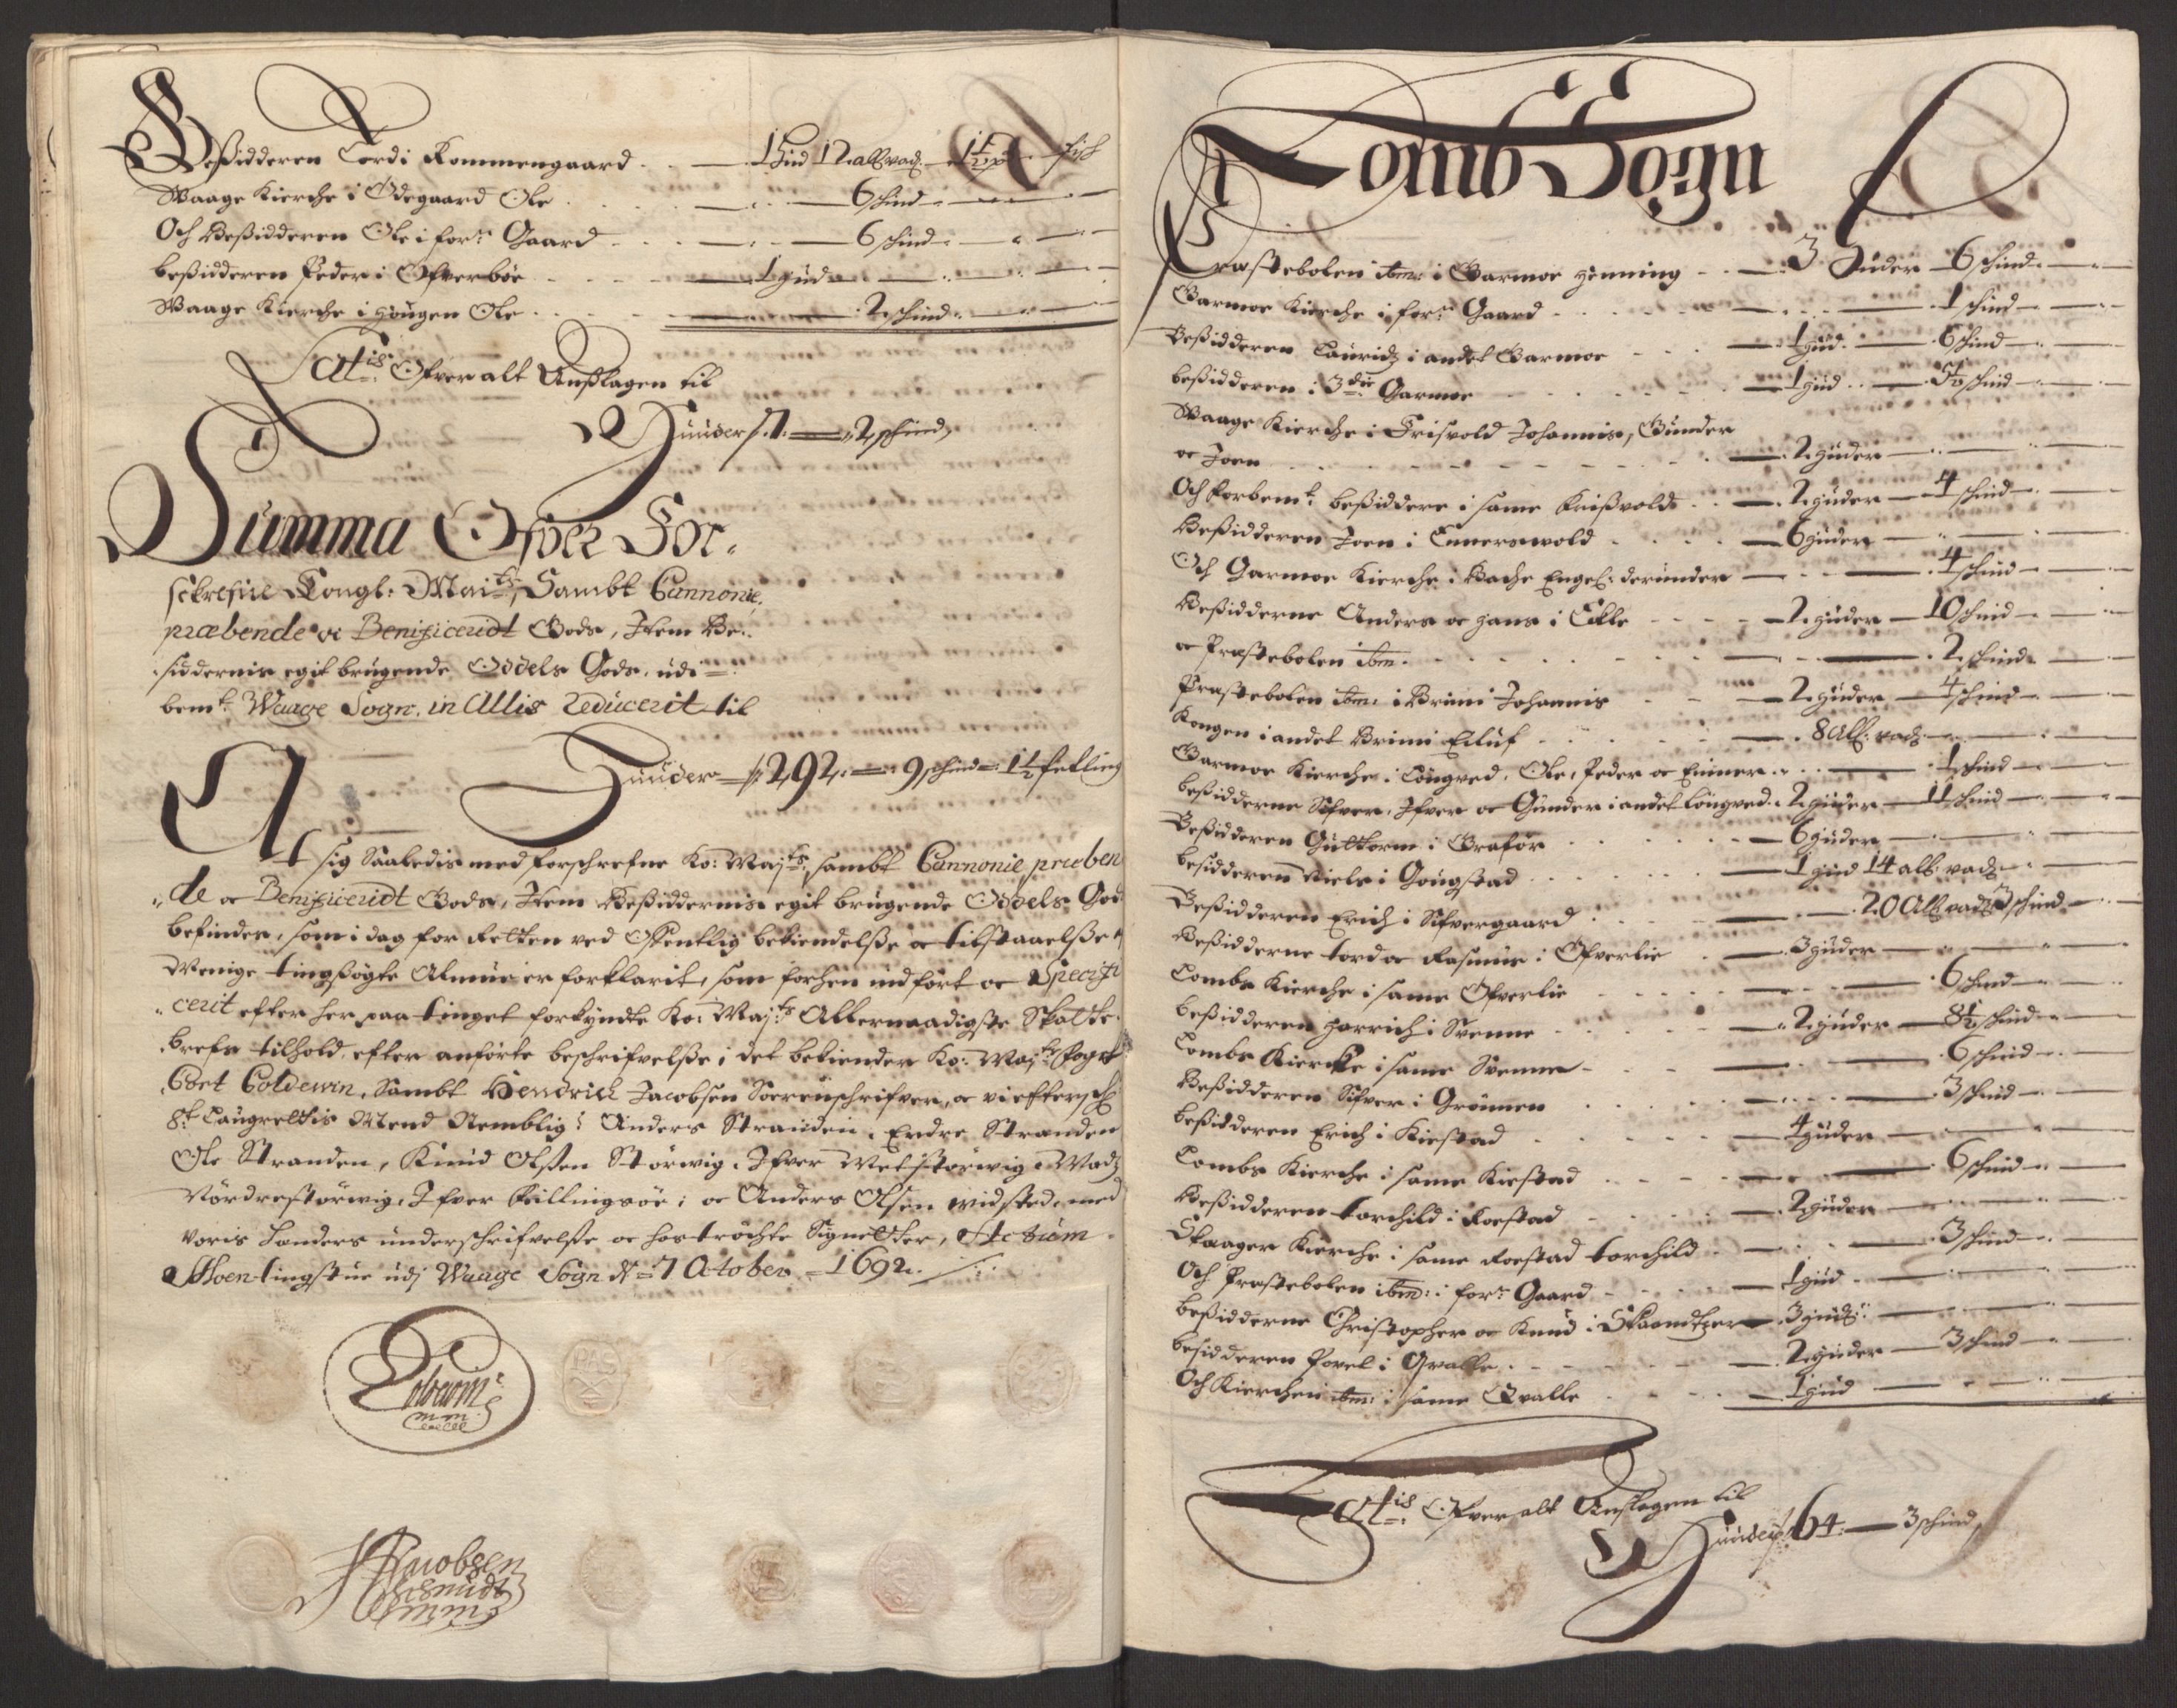 Beßidderen Tord i Rommengaard - 1 hud 12 alb. vad. - 1½ 
Waage Kierche i Ødegaard Ole - 6 schind
Och Beßidderen Ole i forne Gaard - 6 schind
beßidderen Peder i Ofverbøe - 1 hud
Waage Kierche i Hougen Ole - 2 schind
Latis Ofver alt Anßlagen til
Huuder 7. — 2 schind
Summa Ofver For-
schrefne Kongl: Maits, Sambt Cannonie,
præbende oc Beneficeridt Gods, Item Be-
siddernis egit brugende Odels Gods, udi
bemte Waage Sogn, in Allis Reducerit til
Huuder 292 — 9 schind — 1½ felling
At sig Saaledis med forschrefne Ko: Majts, sambt Cannonie, præben
de oc Benificeridt Gods, Item Beßiddernis egit brugende Odels Gods
befindes, som i dag for Retten ved Offentlig bekiendelße oc tilstaaelße af
Menige tingsøgte Almue er forklarit, som forhen indført oc Specifi
cerit efter her paa tinget forkyndte Ko: Majts Allernaadigste Skatte-
brefs tilhold, efter anførte beschrifvelße, det bekiender Ko: Majts fogit
Cort Coldewin, Sambt Hendrich Jacobsen Soerenschrifver, oc vi eftersch:
8te Laugrettis Mend Nemblig: Anders Stranden, Endre Stranden
Ole Stranden, Knud Olßen Storwig, Ifver Velstorwig, Madz
Nordrestorwig, Ifver Killingsøe, oc Anders Olsen widsted, med
voris Hænders underschrifvelße oc hostrøchte Signetter, Actum
Thoen tingstue udj Waage Sogn d. 7 October 1692
PAS
Coldewin
mm
Jacobsen
Schmidt
mm
Lomb Sogn
Præstebolen ibm: i Garmoe Henning - 3 Huder 6 schind
Garmoe Kierche i forne Gaard - 1 schind
Beßidderen Lauridz i andet Garmoe - 1 hud 6 schind
beßidderen i 3die Garmoe - 1 hud - 5½ schind
Waage Kierche i Frisvold Johannis, Gunder
oc Joen - 2 huder
Och forbemte beßiddere i same Frisvold - 2 huder - 4 schind
Beßidderen Joen i Ennerswold - 6 huder
Och Garmoe Kierche i Bache Engesl: derunder - 4 schind
Beßidderne Anders oc Hans i Lille - 2 huder - 10 schind
oc Præstebolen ibm: - 2 schind
Præstebolen ibm: i Brimi Johannis - 2 huder - 4 schind
Kongen i andet Brimi Eiluf - 8 alb: vad:
Garmoe Kierche i Løngved, Ole, Peder oc Einner - 1 schind
beßidderne Sifver, Ifver oc Gunder i andet Løngved: 2 huder - 11 schind
Beßidderen Guttorm i Graffør - 6 huder
beßidderen Niels i Gougstad - 1 hud 14 alb: vad:
Beßidderen Erich i Sifvergaard - 20 alb vad: 3 schind
Beßidderne tord oc Rasmus i Ofverlie - 3 huder
Lombs Kierche i same Ofverlie - 6 schind
beßidderen Harrich i Svenne - 2 huder - 8½ schind
Lombs Kierche i same Svenne - 6 schind
Beßidderen Sifver i Grønnen - 3 schind
beßidderen Erich i Kiestad - 4 huder
Lombs Kierche i same Kiestad - 6 schind
Beßidderen torchild i Roestad - 2 huder
Skaager Kierche i same Roestad torchild - 3 schind
Och Præstebolen ibm: i forne Gaard - 1 hud
beßidderne Christopher oc Knud i Skaandtzer - 3 hud:
beßidderen Povel i Qvalle - 2 huder - 3 schind
Och Kierchen ibm: i same Qvalle - 1 hud
Latis Ofver alt Anslagen til
Huuder 64 — 3 schind